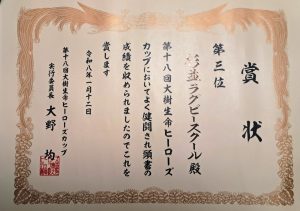 賞状
第三位
ラグビースクール殿
第十八回大樹生命ヒーローズ
カップにおいてよく健闘され頭書の
成績を収められましたのでこれを
賞します
令和八年一月十二日
第十八回大樹生命ヒーローズカップ
実行委員長 大野 均